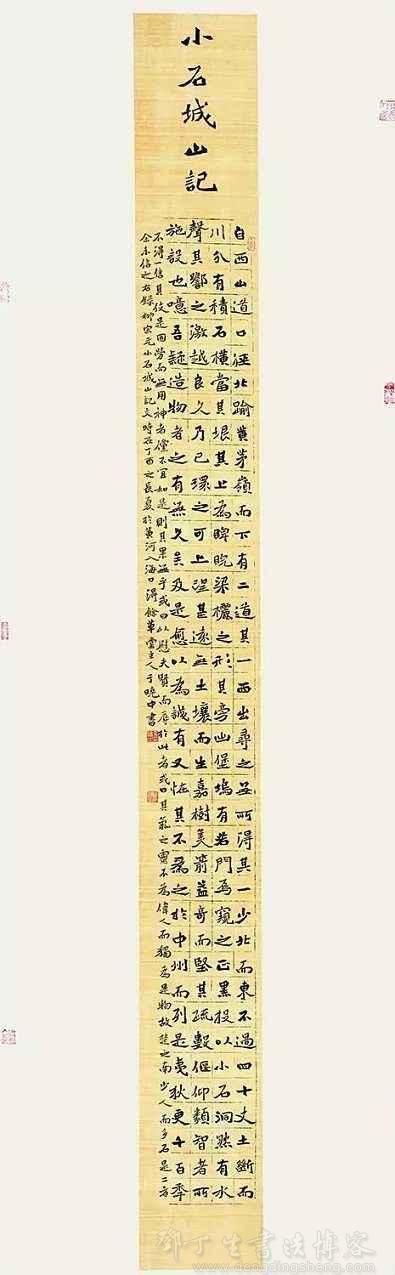 小石城山記
自西山道口徑北踰黃茅嶺而下有二道其一西出尋之無所得其一少北而東不過四十丈土斷而
川分有積石橫當其垠其上為睥睨梁欐之形其旁出堡塢有若門焉窺之正黑投以小石洞然有水
聲其響之激越良久乃已環之可上望甚遠無土壤而生嘉樹美箭益奇而堅其疏數偃仰類智者所
施設也噫吾疑造物者之有無久矣及是愈以為誠有又怪其不為之於中州而列是夷狄更千百年
不得一售其伎是固勞而無用神者儻不宜如是則其果無乎或曰以慰夫賢而辱於此者或曰其氣之靈不為偉人而獨為是物故楚之南少人而多石是二者
余未信之右錄柳宗元小石城山記文時在丁酉之長夏於黃河入海口得餘草堂主人于曉中書
鄧丁生書法博客
www.dengdingsheng.com